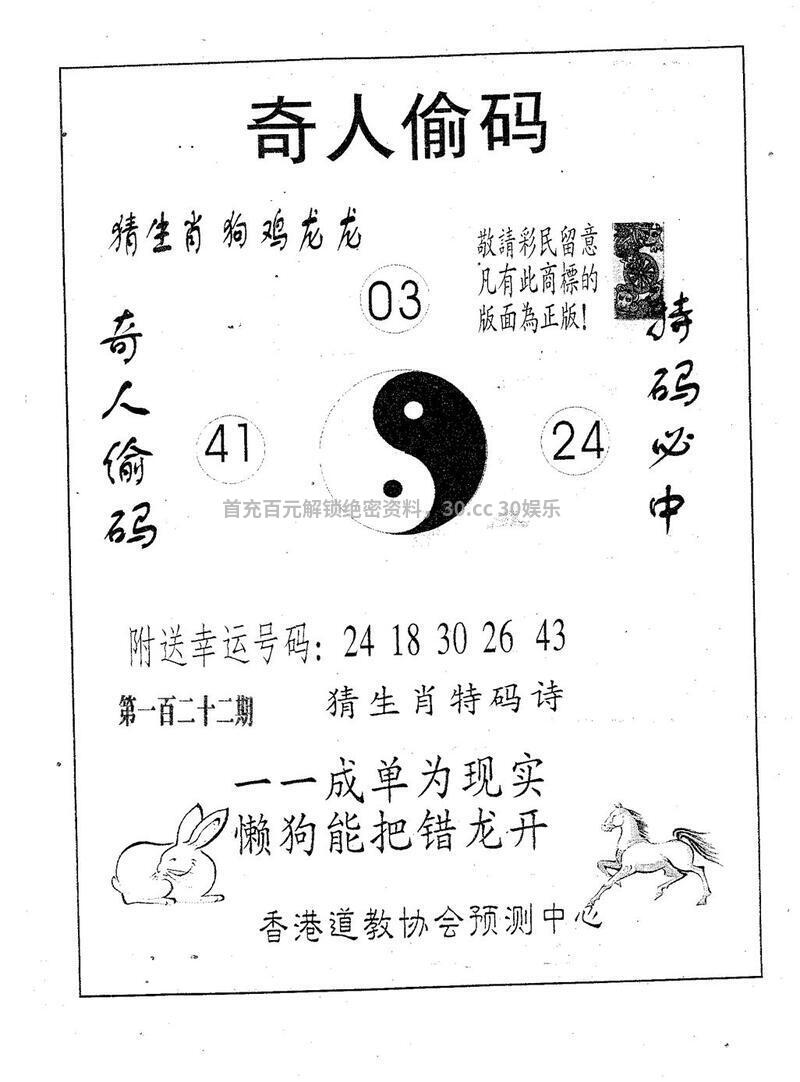 奇人偷码
猜生肖狗鸡龙龙
敬請彩民留意
凡有此商標的
版面為正版!
03
奇人偷码
特码必中
41
24
首充百元解锁绝密资料，30.cc 30娱乐
附送幸运号码: 24 18 30 26 43
第一百二十二期
猜生肖特码诗
一一成单为现实
懒狗能把错龙开
香港道教协会预测中心